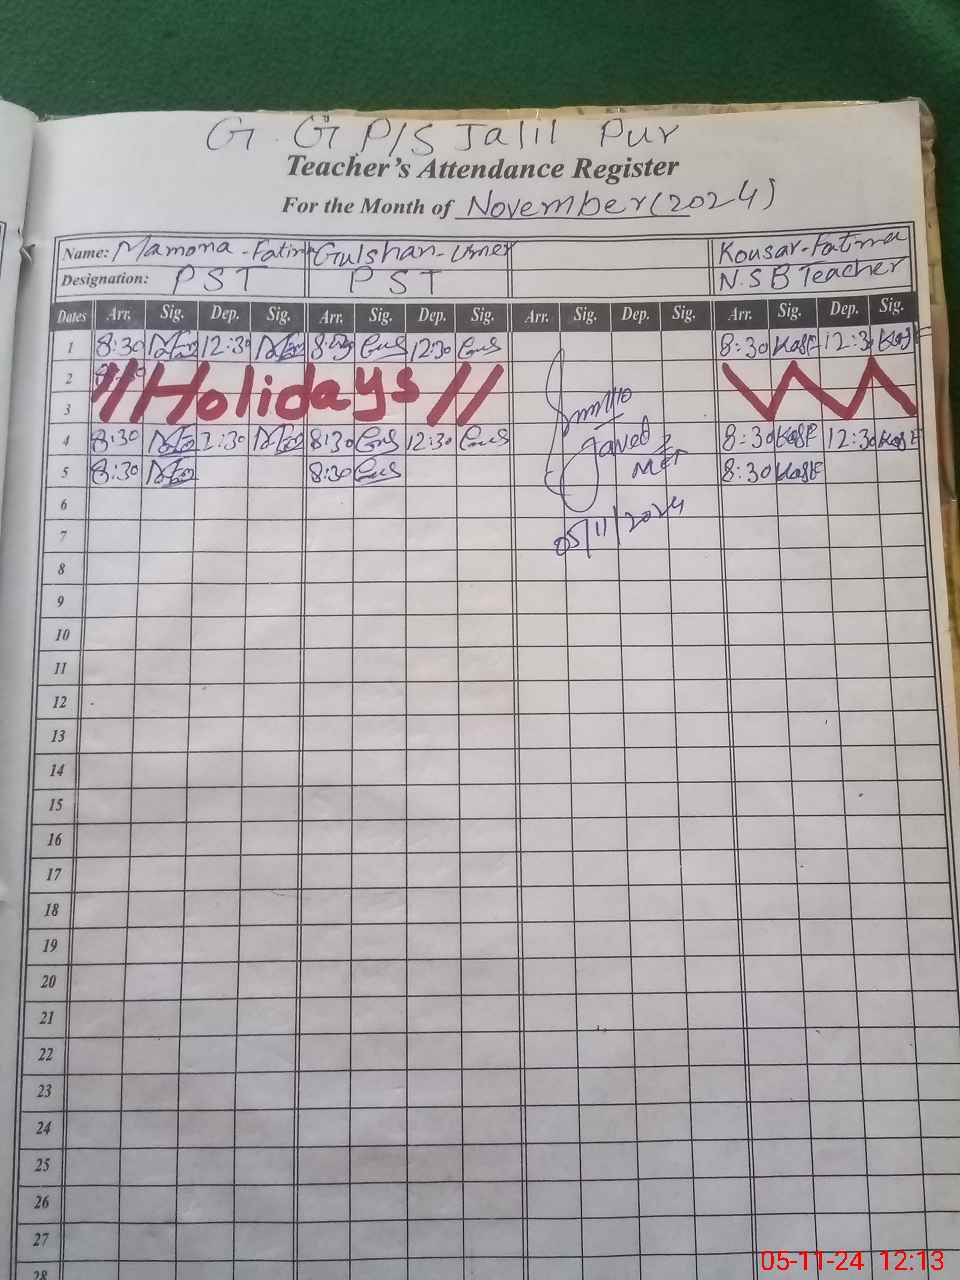 G. G P/S Jalil Pur
Teacher's Attendance Register
For the Month of November (2024)
Name: Mamona - Fatima Gulshan - Umer Kousar - Fatima
Designation: PST PST N.S B Teacher
Dates Arr. Sig. Dep. Sig. Arr. Sig. Dep. Sig. Arr. Sig. Dep. Sig. Arr. Sig. Dep. Sig.
1 8:30 12:30 8:30 Gul 12:30 Gul 8:30 12:30
2 //Holidays//
3
4 8:30 12:30 8:30 Gul 12:30 Gul 8:30 12:30
Javed
5 8:30 8:30 Gul 8:30
6
05/11/2024
7
8
9
10
11
12
13
14
15
16
17
18
19
20
21
22
23
24
25
26
27
28
05-11-24 12:13